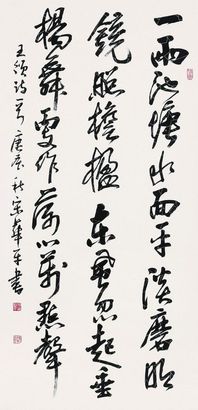 一雨池塘水面平淡磨明
鏡照檐楹東風忽起垂
楊舞更作荷心萬點聲
詩一首庚辰秋宋華平書